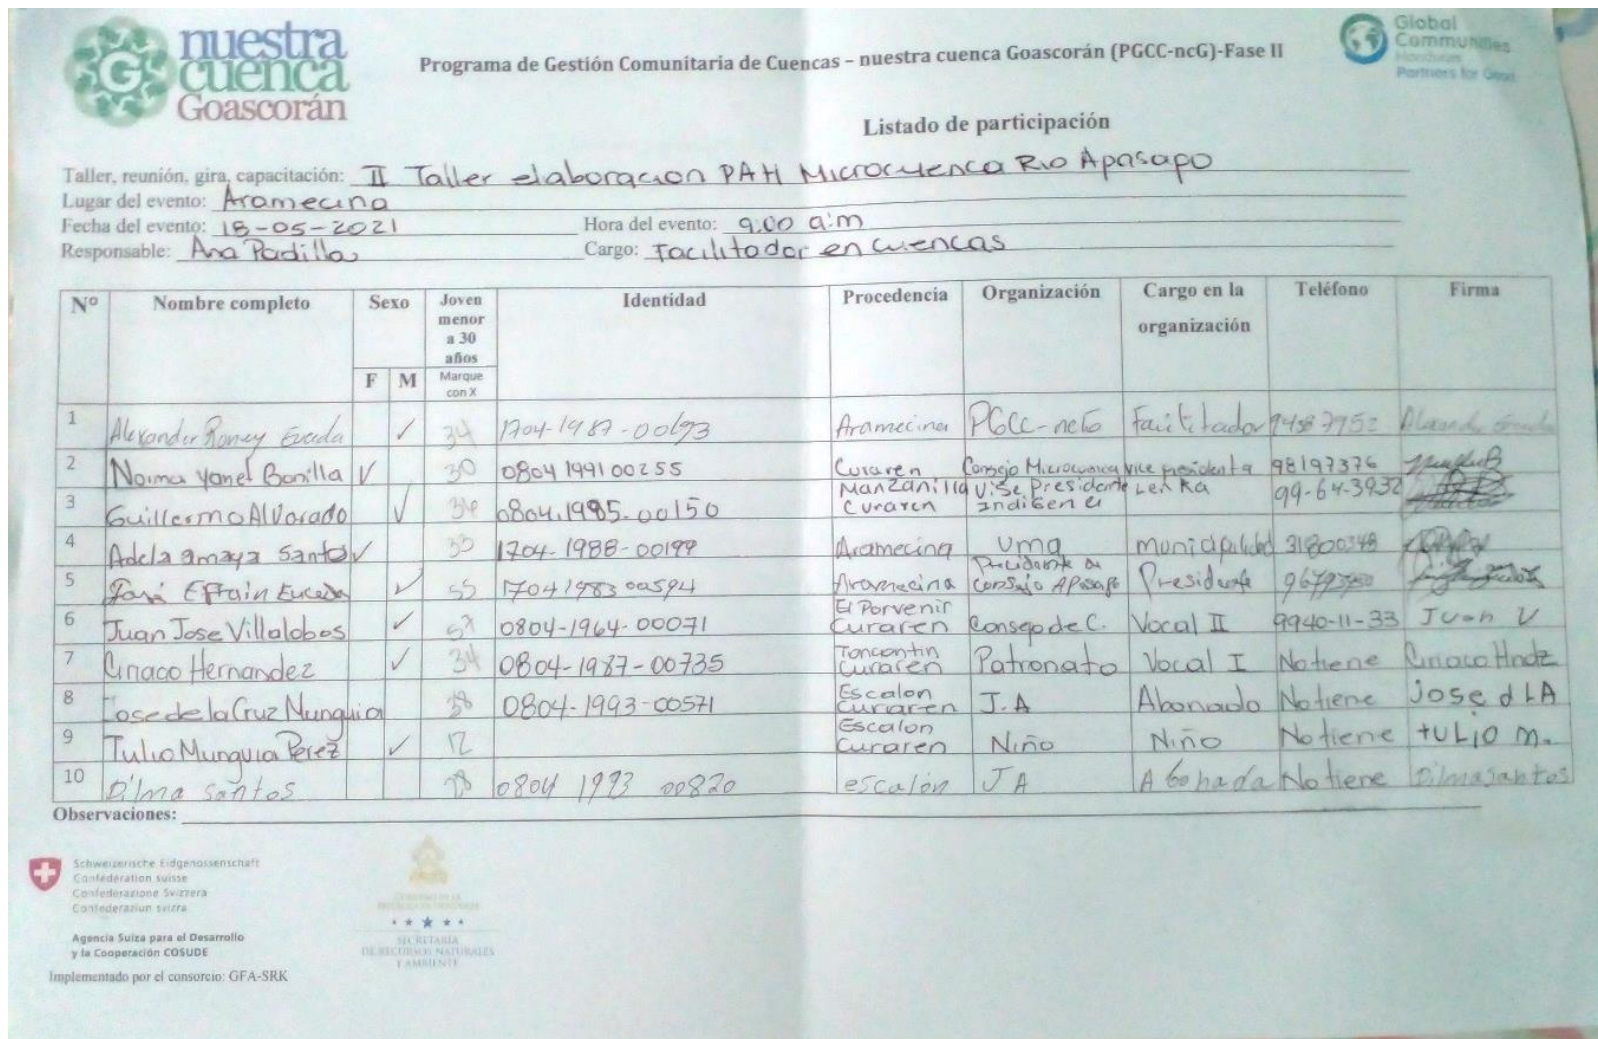 nuestra
cuenca
Goascorán
G
Programa de Gestión Comunitaria de Cuencas – nuestra cuenca Goascorán (PGCC-ncG)-Fase II
Global
Communities
Honduras
Partners for Good
Listado de participación
Taller, reunión, gira, capacitación: II Taller elaboracion PAH Microcuenca Rio Apasapo
Lugar del evento: Aramecina
Fecha del evento: 18-05-2021 Hora del evento: 9:00 a:m
Responsable: Ana Padilla Cargo: Facilitador en cuencas
Nº Nombre completo Sexo Joven menor a 30 años Identidad Procedencia Organización Cargo en la organización Teléfono Firma
F M Marque con X
1 Alexander Roney Euceda ✓ 34 1704-1987-00693 Aramecina PGCC-ncG Facilitador
2 Norma Yanet Bonilla V 30 0804 1991 00255 Curaren Consejo Microcuenca vice presidenta 98197376
3 Guillermo Alvarado ✓ 0804.1985-00150 Manzanilla Curaren Vise Presidente Indigena Lenka 99-64-3932
4 Adela amaya Santos ✓ 1704-1988-00199 Aramecina uma municipalidad 31800348
5 José Efrain Euceda ✓ 1704 1983 00594 Aramecina Presidente de Consejo Apasapo Presidente
6 Juan Jose Villalobos ✓ 57 0804-1964-00071 El Porvenir Curaren Consejo de C. Vocal II 9940-11-33 Juan V
7 Ciriaco Hernandez ✓ 34 0804-1987-00735 Toncontin Curaren Patronato Vocal I No tiene Ciriaco Hndz
8 Jose de la Cruz Munguia 0804-1993-00571 Escalon Curaren J.A Abonado No tiene Jose d LA
9 Tulio Munguia Perez ✓ 12 Escalon Curaren Niño Niño No tiene tulio m.
10 Dilma santos 28 0804 1993 00820 escalón JA Abonada No tiene Dilma santos
Observaciones:
Schweizerische Eidgenossenschaft
Confédération suisse
Confederazione Svizzera
Confederaziun svizra
Agencia Suiza para el Desarrollo
y la Cooperación COSUDE
Implementado por el consorcio: GFA-SRK
GOBIERNO DE LA
REPÚBLICA DE HONDURAS
SECRETARÍA
DE RECURSOS NATURALES
Y AMBIENTE